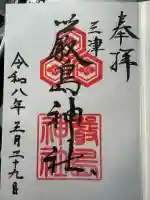 奉拝
三津
厳島神社
令和八年三月二十九日
嚴島
神社